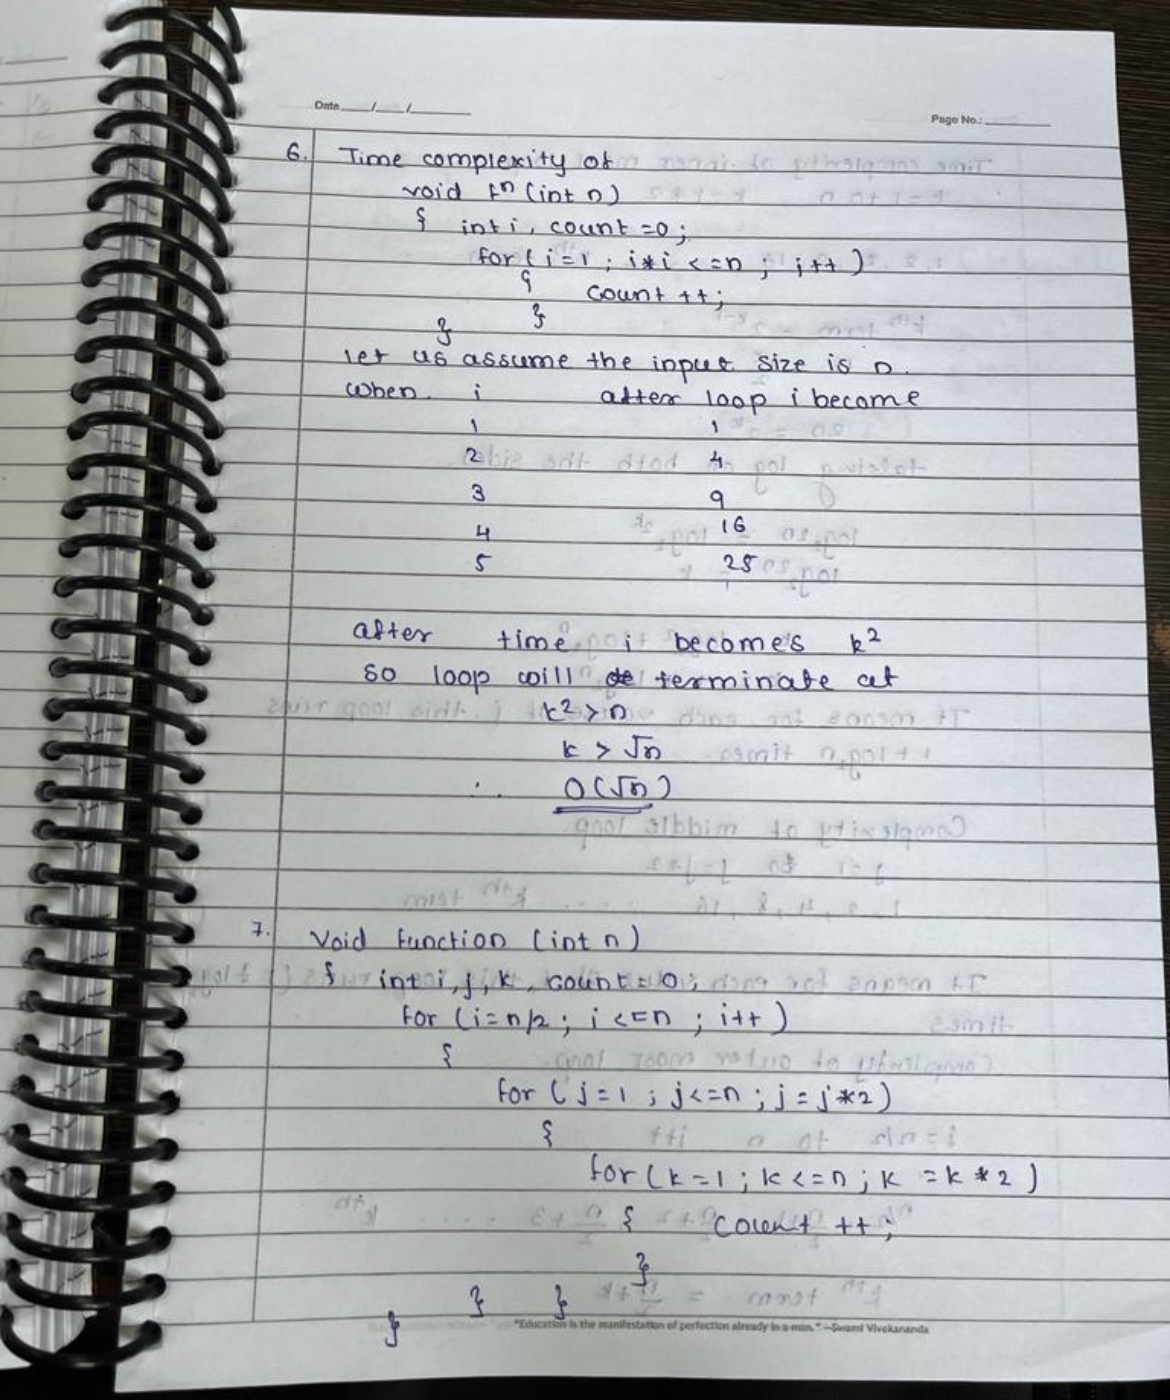 Date ___/___/______
Page No.: ________
6. Time complexity of
void fn (int n)
{ int i, count =0;
for( i=1 ; i*i <=n ; i++ )
{ count ++;
}
}
let us assume the input size is n.
when i after loop i become
1 1
2 4
3 9
4 16
5 25
after time i becomes k²
so loop will terminate at
k² > n
k > √n
∴ O(√n)
7. Void function (int n)
{ int i, j, k, count = 0;
for (i=n/2 ; i <=n ; i++ )
{
for ( j=1 ; j<=n ; j = j*2)
{
for ( k=1 ; k<=n ; k =k * 2 )
{ count ++;
}
} }
}
"Education is the manifestation of perfection already in a man." —Swami Vivekananda